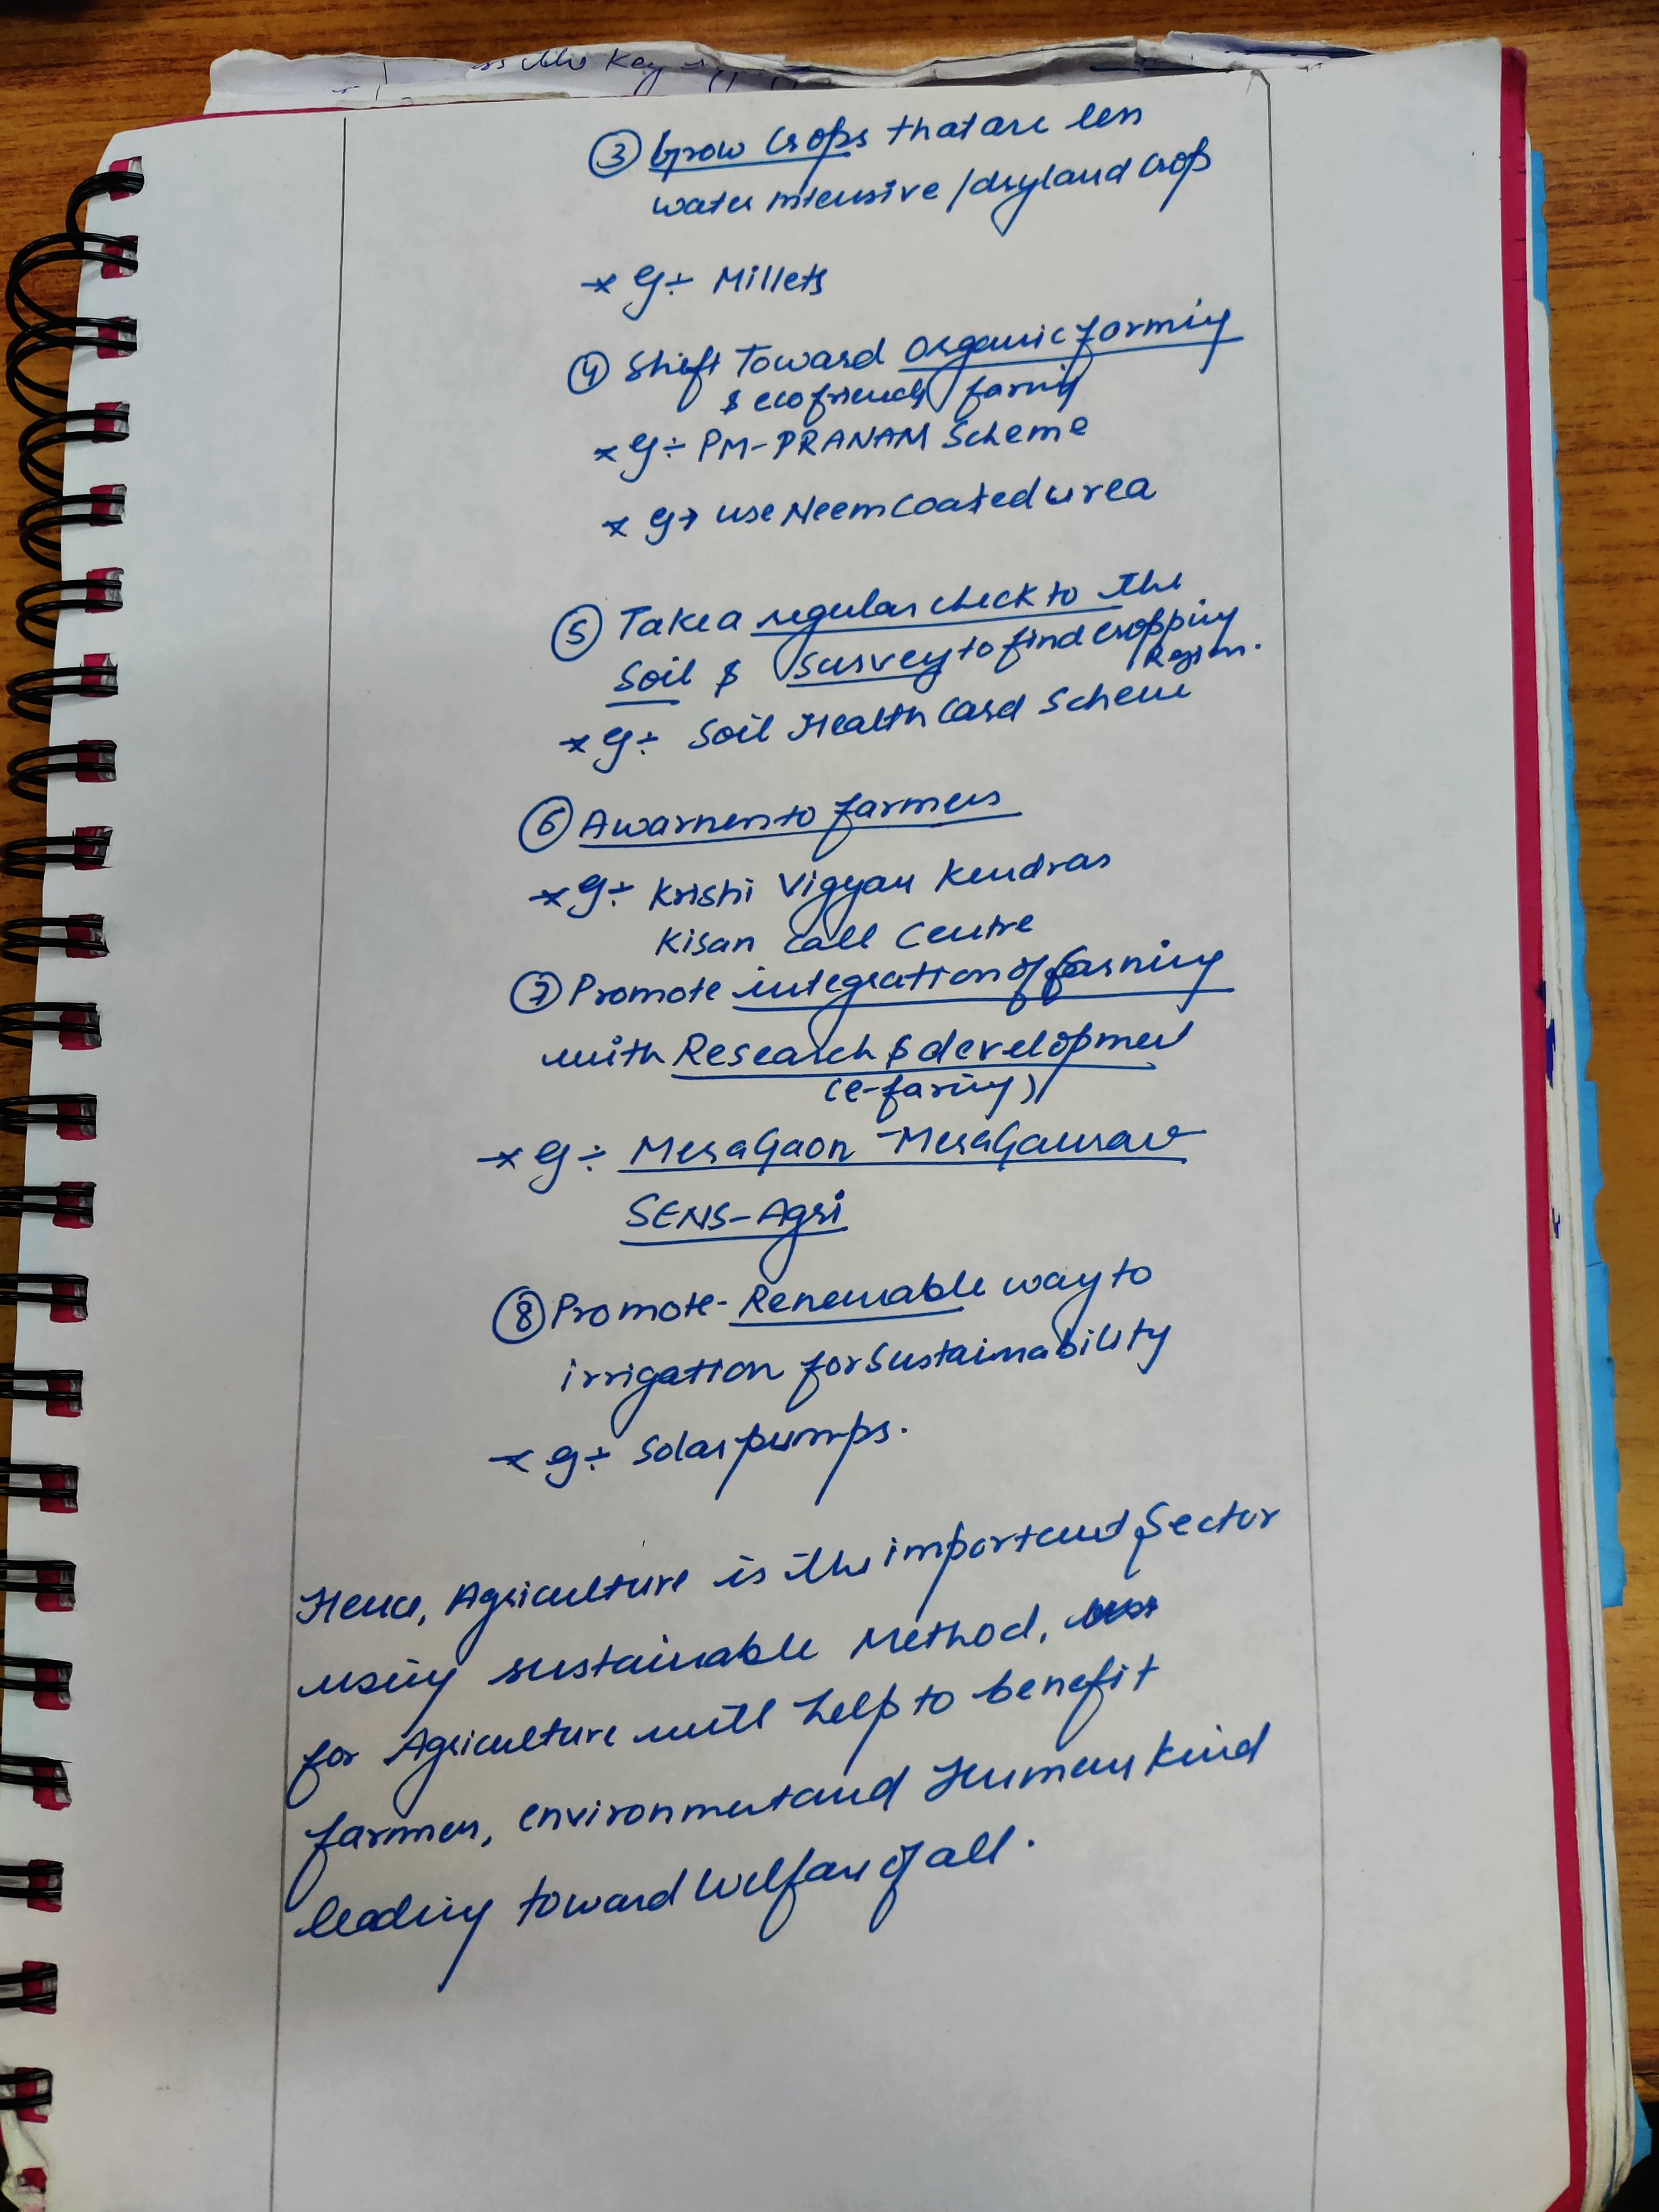 ③ Grow Crops that are less
water intensive / dryland crop
* eg÷ Millets
④ Shift Toward organic farming
& ecofriendly farming
* eg÷ PM-PRANAM Scheme
* eg→ use Neem coated urea
⑤ Take a regular check to the
Soil & Survey to find cropping
Region.
* eg÷ Soil Health Card Scheme
⑥ Awarness to farmers
* eg÷ Krishi Vigyan Kendras
Kisan Call Centre
⑦ Promote integration of farming
with Research & development
(e-faring)
* eg÷ MeraGaon - MeraGaurav
SENS-Agri
⑧ Promote - Renewable way to
irrigation for sustainability
* eg÷ Solar pumps.
Hence, Agriculture is the important Sector
using sustainable Method,
for Agriculture will help to benefit
farmers, environment and Human kind
leading toward Welfare of all.